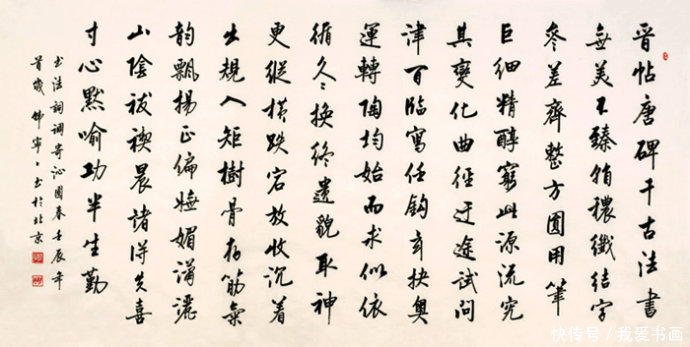 晋帖唐碑千古法書
無美不臻穠纖結字
參差齊整方圓用筆
巨細精醇窮此源流究
其變化曲徑迂途試問
津百臨寫任鈎玄抉奥
運轉陶均始而求似依
循久々換終遺貌取神
更縱横跌宕放收沉着
出規入矩樹骨存筋氣
韵飄揚正偏嫵媚瀟灑
山陰祓禊晨諸得失喜
寸心默喻功半生勤
書法詞調寄沁園春壬辰年
首歲書於北京
快传号/我爱书画